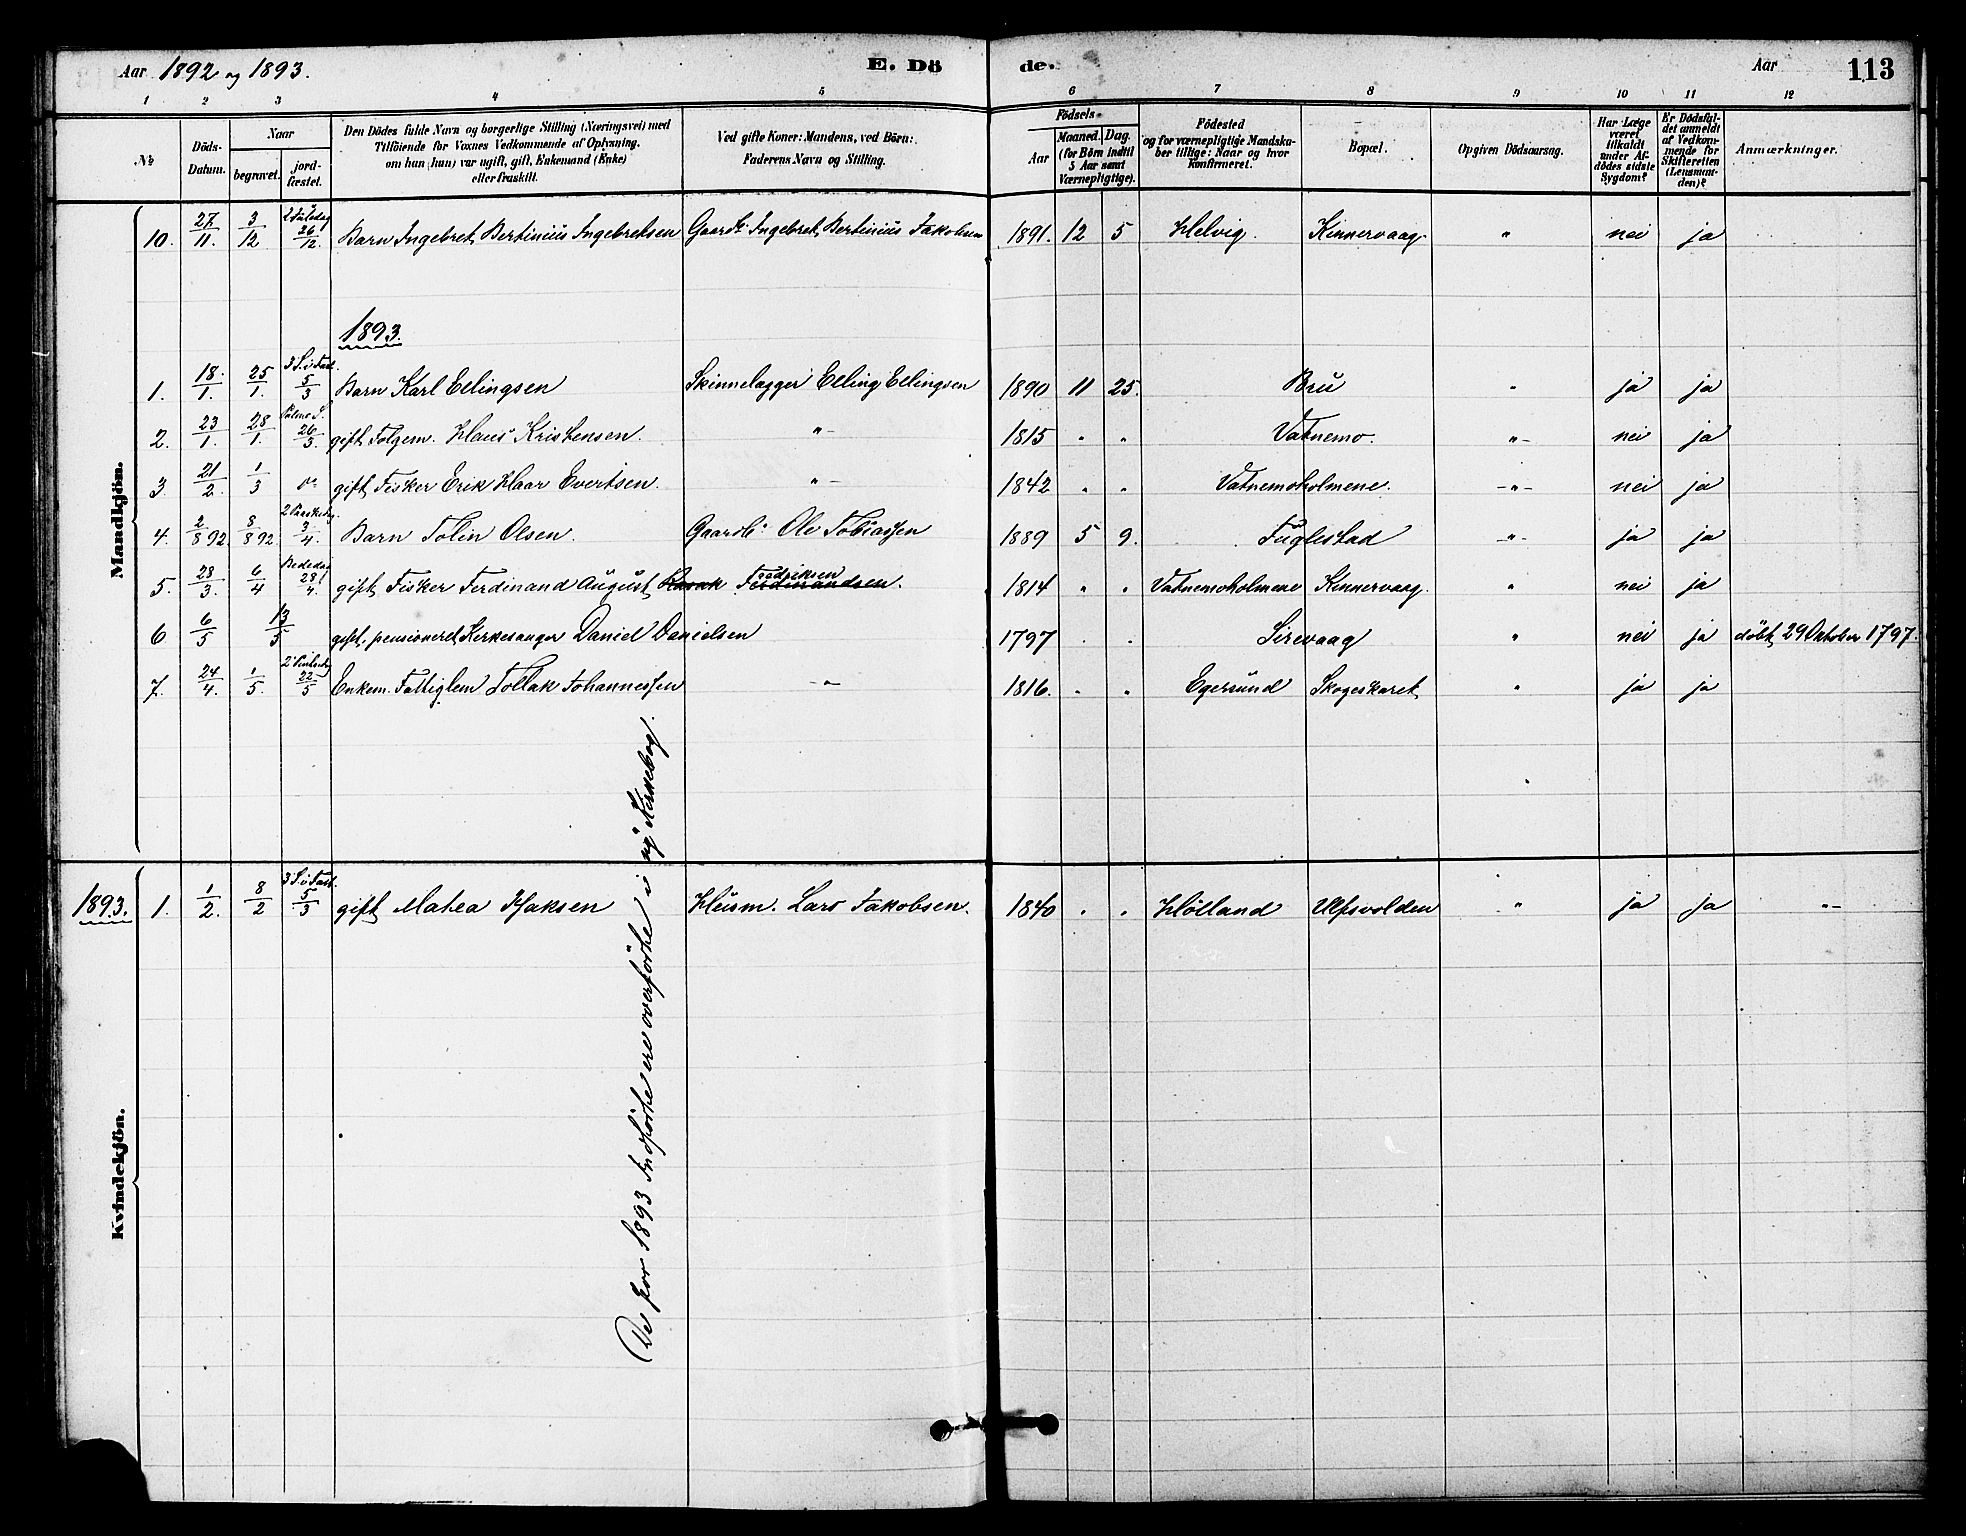 Aar 1892 og 1893. E. Dö de. Aar 113
1 2 3 4 5 6 7 8 9 10 11 12
№ Döds-Datum. Naar begravet. jord-fæstet. Den Dödes fulde Navn og borgerlige Stilling (Næringsvei) med Tilföiende for Voxnes Vedkommende af Oplysning. om han (hun) var ugift, gift, Enkemand (Enke) eller fraskilt. Ved gifte Koner: Mandens, ved Börn: Faderens Navn og Stilling. Födsels- Aar Maaned. Dag. (for Börn indtil 5 Aar samt Værnepligtige). Födested og for værnepligtige Mandskaber tillige: Naar og hvor Konfirmeret. Bopæl. Opgiven Dödsaarsag. Har Læge været tilkaldt under Afdödes sidste Sygdom? Er Dödsfaldet anmeldt af Vedkommende for Skifteretten (Lensmanden)? Anmærkninger.
Mandkjön.
10. 27/11. 3/12 2 Juledag 26/12. Barn Ingebret Bertinius Ingebretsen Gaardb. Ingebret Bertinius Jakobsen 1891. 12 5 Helvig. Kinnervaag. " nei ja
1893.
1. 18./1. 25/1. 3 S. i Fast. 5/3 Barn Karl Ellingsen Skinnelægger Elling Ellingsen 1890 11 25. Bru " ja ja
2. 23/1. 28/1. Palme S. 26/3. gift Folgem. Klaus Kristensen. " 1815 " " Vatnemo. " nei ja
3. 21/2. 1/3 gift Fisker Erik Haar Evertsen. " 1842 " " Vatnemoholmene. " nei ja
4. 2/8 92. 8/8 92. 2 Paaskedag. 3/4. Barn Tolin Olsen. Gaardb. Ole Tobiassen 1889 5 9. Fuglestad " ja ja
5. 28/3. 6/4 Bededag 28/4. gift Fisker Ferdinand August Fredriksen Ferdinandsen. 1814 " " Vatnemoholmene Kinnervaag. " nei ja
6 6/5 13/5 gift, pensioneret Kirkesanger Daniel Danielsen 1797 " " Sirevaag " nei ja döbt 29 Oktober 1797.
7. 24/4. 1/5. 2 Pintsedag 22/5 Enkem. Fattiglem Tollak Johannessen " 1816. " " Egersund Skogeskaret " ja ja
Kvindekjön.
1893. 1. 1/2. 8/2 3 S. i Fast. 5/3 gift Mahea Isaksen Husm. Lars Jakobsen. 1840 " " Hölland Ulfsvolden " ja ja "
De for 1893 Indförte ere overförte i ny Kirkebog.